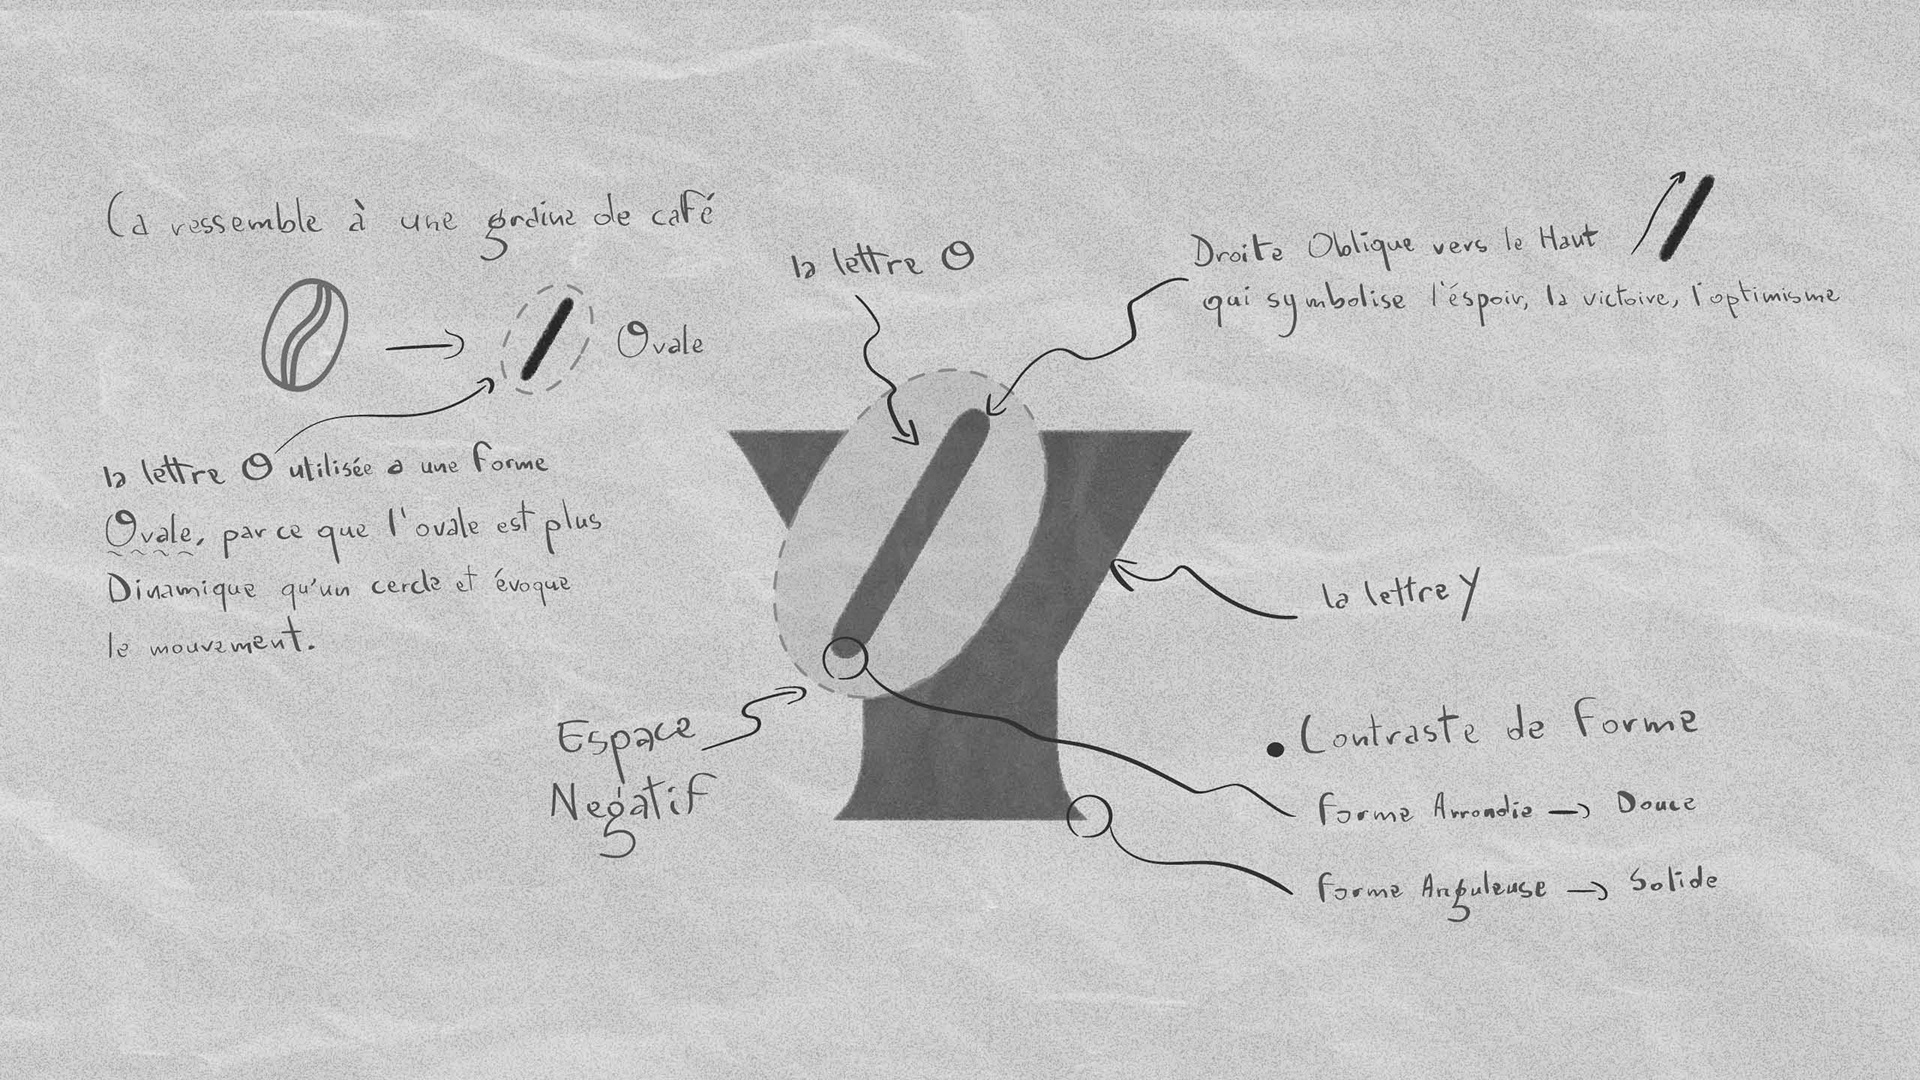 Ca ressemble à une graine de café
Ovale
la lettre O utilisée a une forme
Ovale, par ce que l'ovale est plus
Dinamique qu'un cercle et évoque
le mouvement.
la lettre O
Droite Oblique vers le Haut
qui symbolise l'éspoir, la victoire, l'optimisme
la lettre Y
Espace
Negatif
• Contraste de forme
forme Arrondie → Douce
forme Anguleuse → Solide